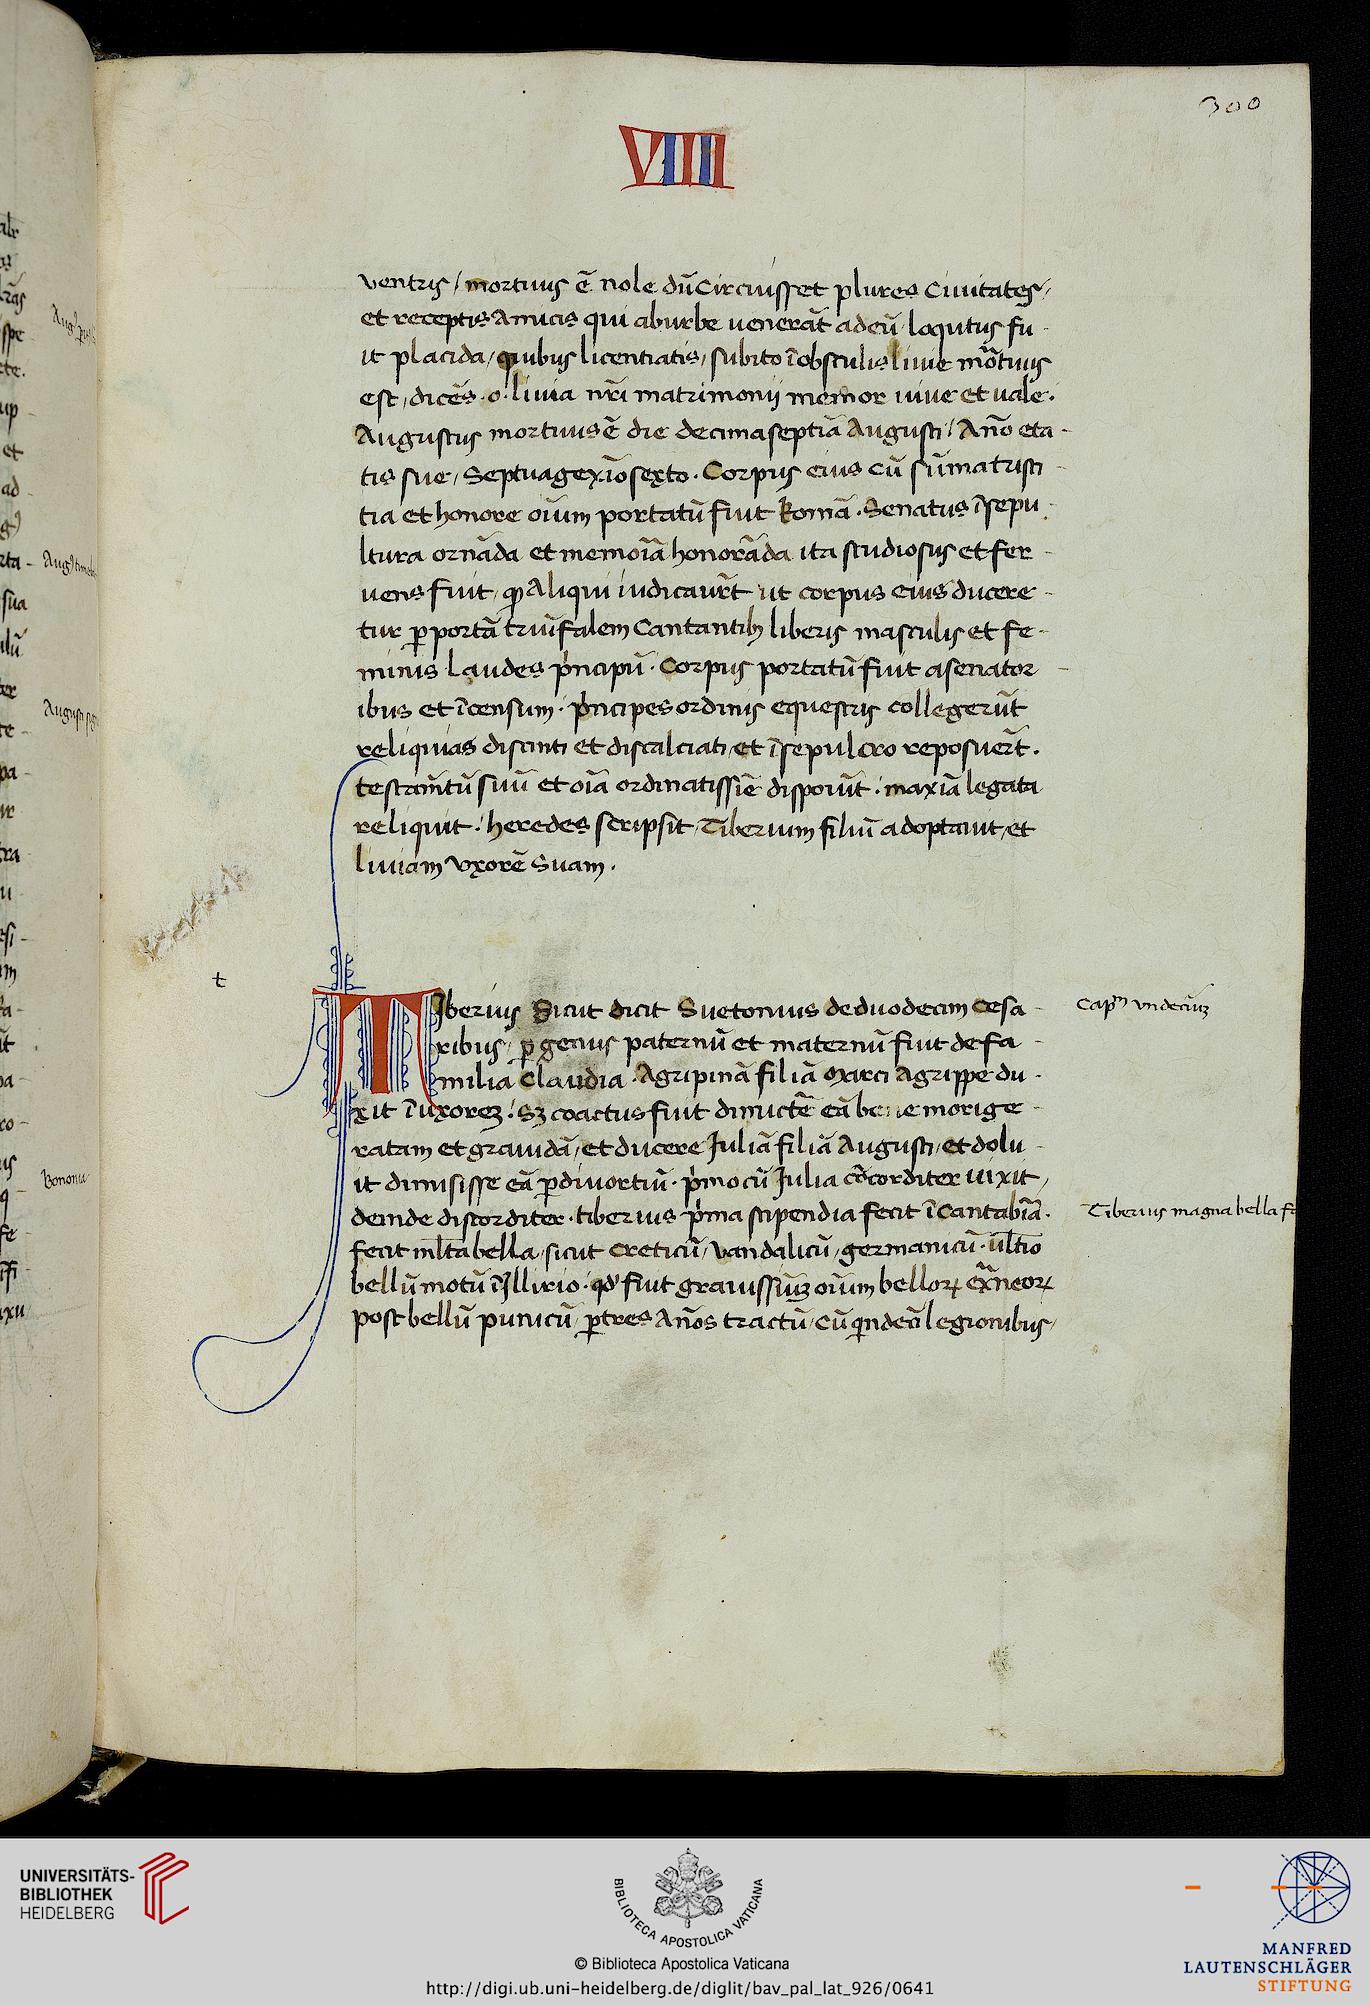 300
VIIII
ventris / mortuus ē nole dū Circuisset plures Ciuitates /
et receptis Amicis qui ab urbe uenerāt ad eū loqutus fu -
it placida / quibus licentiatis / subito ī obsculis liuie mōtuus
est / dicēs . o . liuia nr̄i matrimonij memor uiue et uale .
Augustus mortuus ē die decima septīa Augusti / Año eta -
tis sue / Septuagexīo sexto . Corpus eius cū sūma tristi -
tia et honore oīum portatū fuit Romā . Senatus ī sepu -
ltura ornāda et memoīa honorāda ita studiosus et fer -
uens fuit / qꝫ Aliqui iudicaur̄t ut corpus eius ducere -
tur ꝑ portā triūfalem Cantantibꝫ liberis masculis et fe -
minis laudes pⁱncipū . Corpus portatū fuit a senator -
ibus et īcensum . pⁱncipes ordinis equestris collegerūt
reliquias discinti et discalciati et ī sepulcro reposuer̄t .
testam̄tū suū et oīa ordinatissīe disposuit . maxīa legata
reliquit . heredes scripsit Tiberium filiū adoptauit et
liuiam uxorē Suam .
t
Tiberius Sicut dicit Suetonius de duodecim Cesa -
Cap̄m undecīuꝫ
ribus / ꝑ genus paternū et maternū fuit de fa -
milia Claudia . Agripinā filiā Marci Agrippe du -
xit ī uxoreꝫ . Sꝫ coactus fuit dimictē eā bene morige -
ratam et grauidā / et ducere Juliā filiā Augusti / et dolu -
it dimisisse eā ꝑ diuortiū . pⁱmo cū Julia cōcorditer uixit /
deinde discorditer . tiberius pⁱma stipendia fecit ī Cantabⁱā .
Tiberius magna bella f
fecit ml̄ta bella / sicut Creticū / Vandalicū / germanicū . ultīo
bellū motū ī Jllirio . qđ fuit grauissīuꝫ oīum belloꝝ ext̄neoꝝ
post bellū punicū / ꝑ tres Años tractū / cū qⁱndecī legionibus /
Bononia
UNIVERSITÄTS-
BIBLIOTHEK
HEIDELBERG
BIBLIOTECA APOSTOLICA VATICANA
© Biblioteca Apostolica Vaticana
http://digi.ub.uni-heidelberg.de/diglit/bav_pal_lat_926/0641
MANFRED
LAUTENSCHLÄGER
STIFTUNG